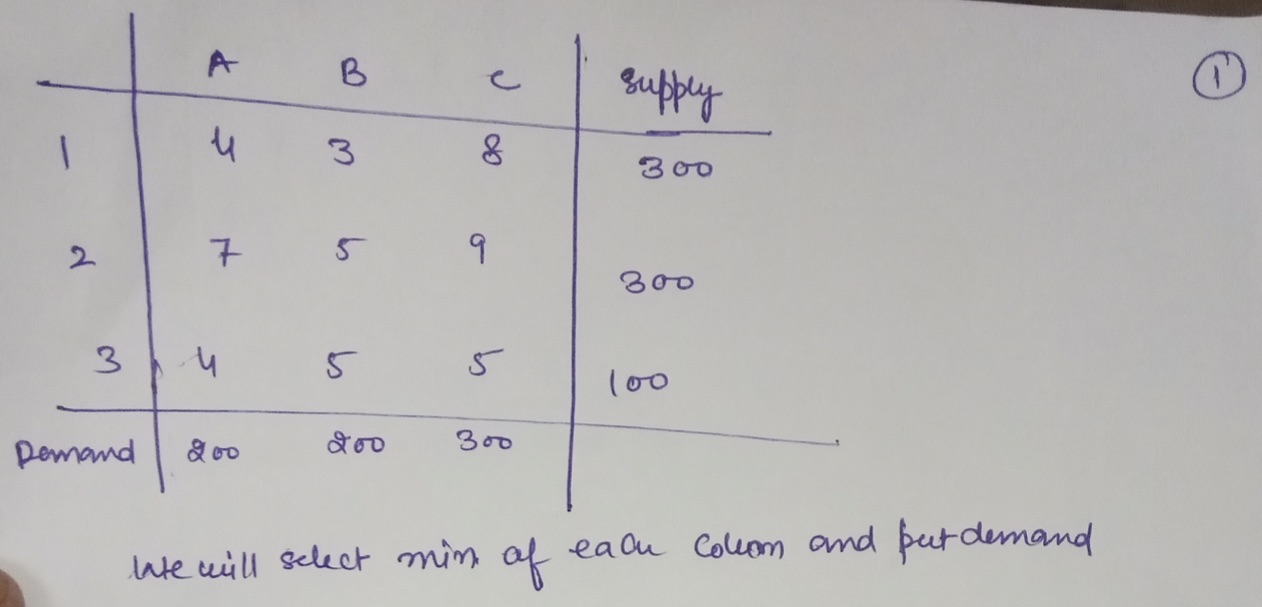 A B C supply
1
1 4 3 8 300
2 7 5 9 300
3 4 5 5 100
Demand 200 200 300
We will select min of each Colum and put demand